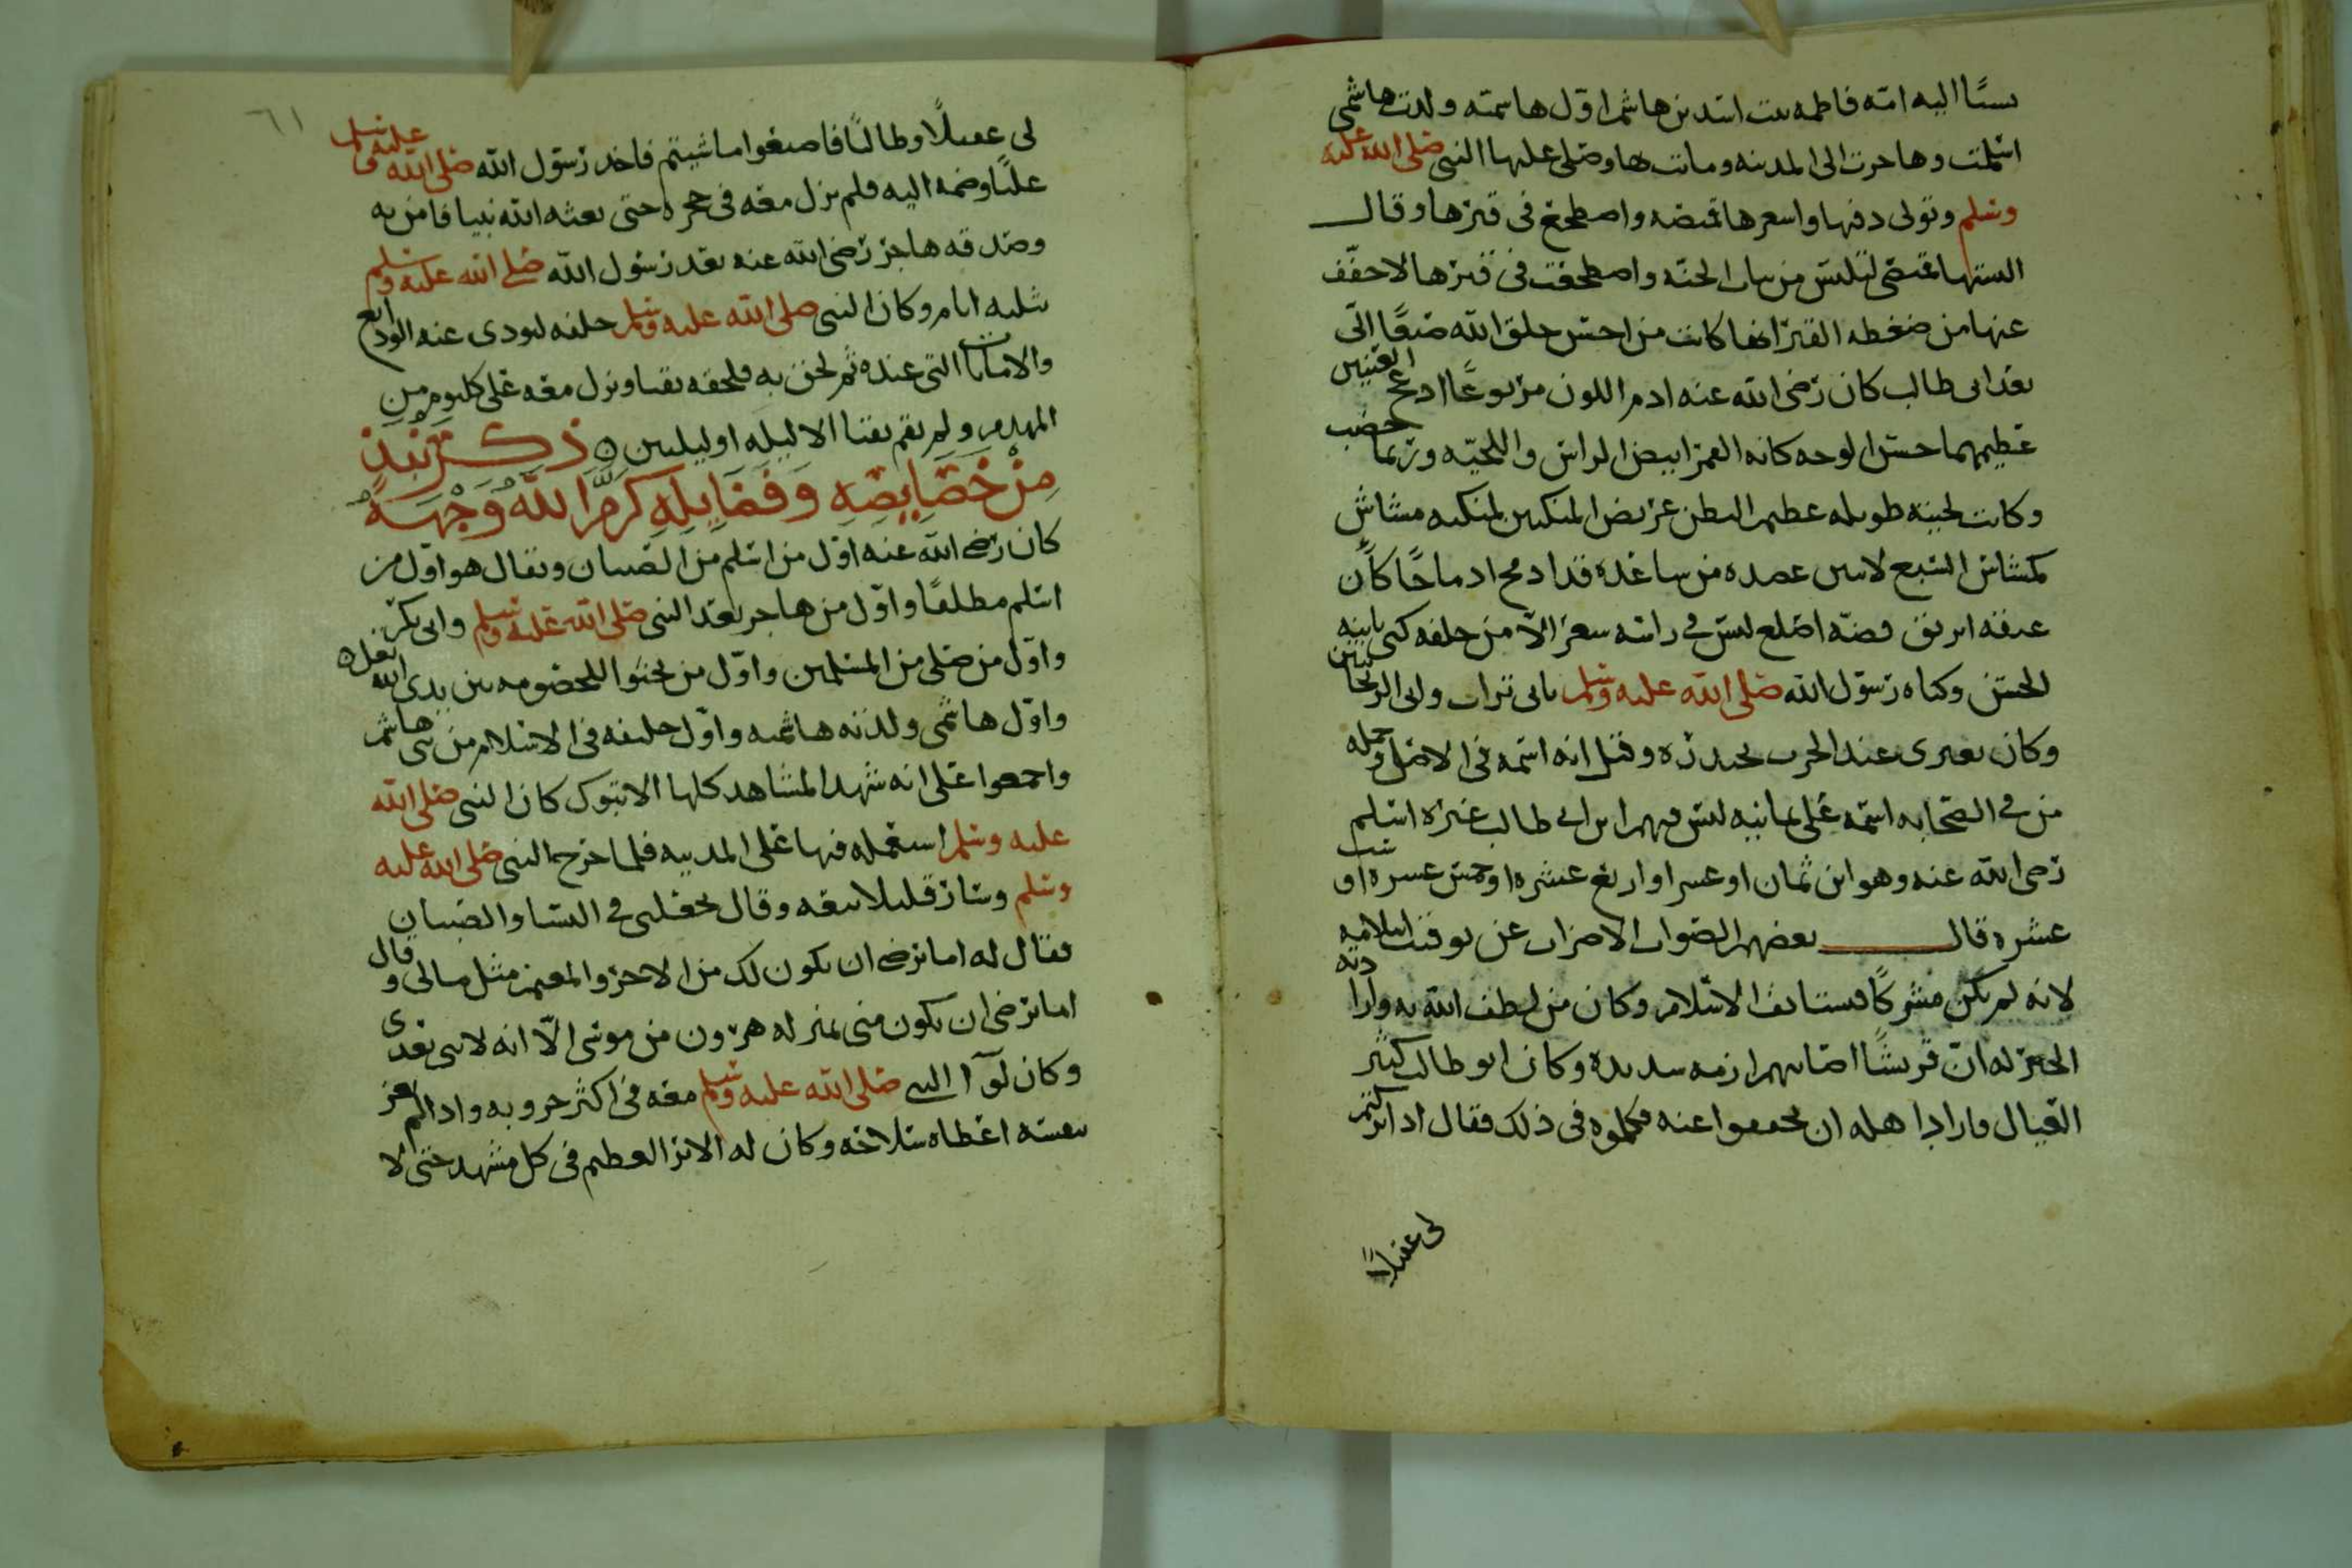 نسبًا اليه امه فاطمه بنت اسد بن هاشم اول هاشميه ولدت هاشمي
اسلمت وهاجرت الى المدينه وماتت بها وصلى عليها النبي صلى الله عليه
وسلم وتولى دفنها واشعرها قميصه واضطجع في قبرها وقال
البستها قميصي لتلبس من ثياب الجنه واضطجعت في قبرها لاخفف
عنها من ضغطه القبر انها كانت من احسن خلق الله صنعًا الي
بعد ابي طالب كان رضي الله عنه ادم اللون مربوعًا ادعج العينين
عظيمهما حسن الوجه كانه القمر ابيض الراس واللحيه وربما خضب
وكانت لحيته طويله عظيم البطن عريض المنكبين لمنكبه مشاش
كمشاش السبع لا يبين عضده من ساعده قد ادمج ادماجًا كأن
عنقه ابريق فضه اصلع ليس في راسه شعر الا من خلفه كني بابنيه
الحسن وكناه رسول الله صلى الله عليه وسلم بابي تراب وابي الريحانتين
وكان يعتزي عند الحرب بحيدره وقيل انه اسمه في الاصل وجمله
من في الصحابه اسمه علي ثمانيه ليس فيهم ابن ابي طالب غيره اسلم
رضي الله عنه وهو ابن ثمان او عشر او اربع عشره او خمس عشره او ست
عشره قال بعضهم الصواب الاضراب عن توقيت اسلامه
لانه لم يكن مشركًا فيستانف الاسلام وكان من لطف الله به وارادته
الخير له ان قريشًا اصابهم ازمه شديده وكان ابو طالب كثير
العيال فاراد اهله ان يخففوا عنه فكلموه في ذلك فقال اذا تركتم
لي عقيلًا
٦١
لي عقيلًا وطالبًا فاصنعوا ما شيتم فاخذ رسول الله صلى الله عليه وسلم
عليًا وضمه اليه فلم يزل معه في حجره حتى بعثه الله نبيا فامن به
وصدقه هاجر رضي الله عنه بعد رسول الله صلى الله عليه وسلم
بثلثه ايام وكان النبي صلى الله عليه وسلم خلفه ليودي عنه الودايع
والامانات التي عنده ثم لحق به فلحقه بقبا ونزل معه على كلثوم بن
الهدم ولم يقم بقبا الا ليله او ليلتين ه ذكر نبذ
من خصايصه وفضايله كرم الله وجهه
كان رضي الله عنه اول من اسلم من الصبيان ويقال هو اول من
اسلم مطلقًا واول من هاجر بعد النبي صلى الله عليه وسلم وابي بكر
واول من صلى من المسلمين واول من يجثوا للخصومه بين يدي الله تعلى ه
واول هاشمي ولدته هاشميه واول خليفه في الاسلام من بني هاشم
واجمعوا على انه شهد المشاهد كلها الا تبوك كان النبي صلى الله
عليه وسلم استعمله فيها على المدينه فلما خرج النبي صلى الله عليه
وسلم وسار قليلا تبعه وقال تخلفني في النسا والصبيان
فقال له اما ترضى ان يكون لك من الاجر والمغنم مثل مالي وقال
اما ترضى ان تكون مني بمنزله هرون من موسى الا انه لا نبي بعدي
وكان لوآ النبي صلى الله عليه وسلم معه في اكثر حروبه واذا لم يغز
بنفسه اعطاه سلاحه وكان له الاثر العظيم في كل مشهد حتى لا